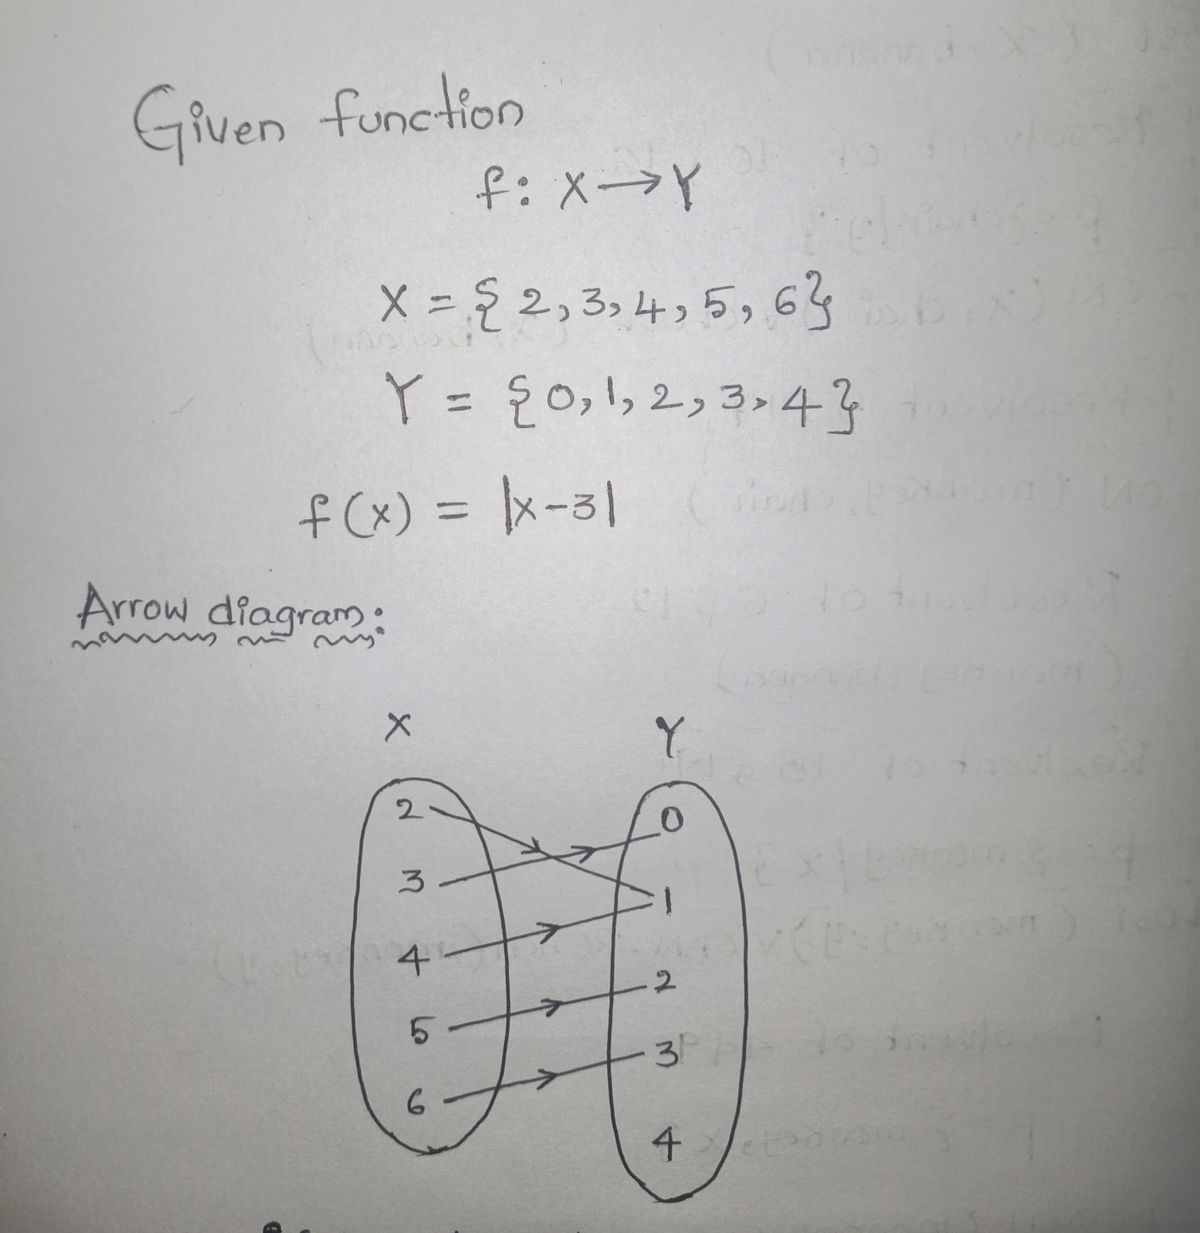 Given function
f: X→Y
X = {2, 3, 4, 5, 6}
Y = {0, 1, 2, 3, 4}
f(x) = |x-3|
Arrow diagram:
X Y
2 0
3 1
4 2
5 3
6 4